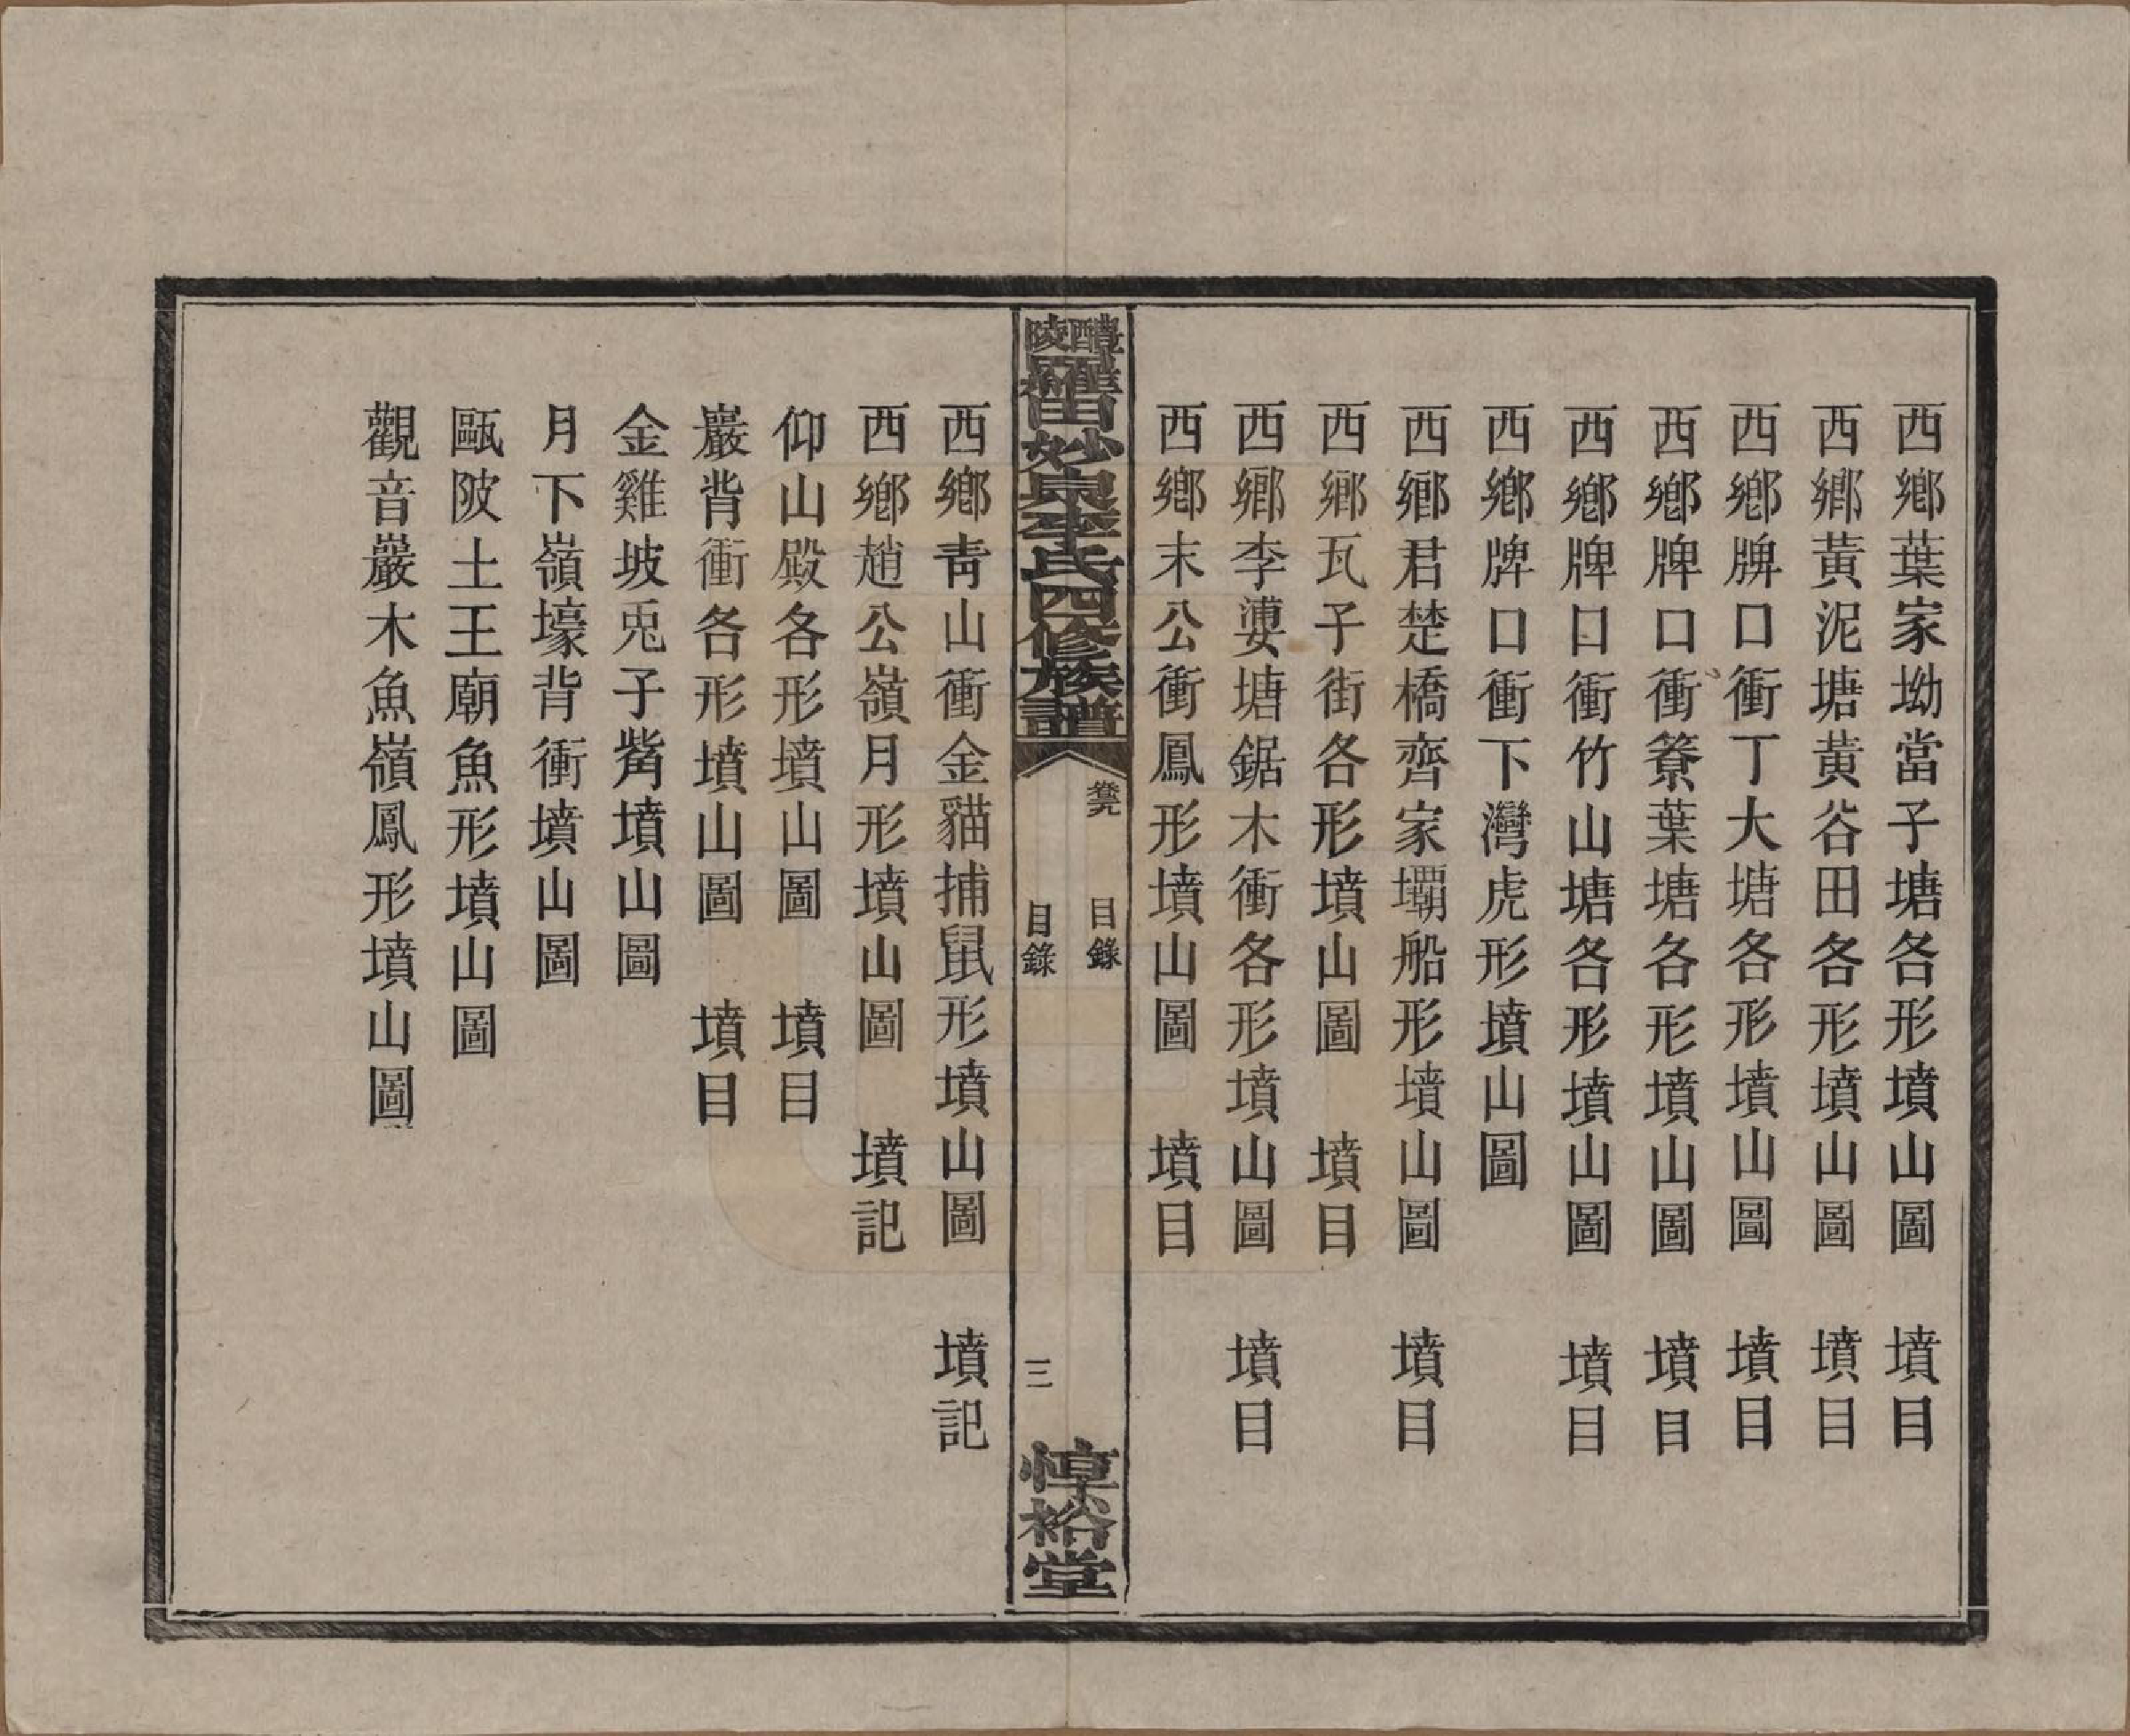 西鄉葉家坳當子塘各形墳山圖　墳目
西鄉黃泥塘黄谷田各形墳山圖　墳目
西鄉牌口衝丁大塘各形墳山圖　墳目
西鄉牌口衝簝葉塘各形墳山圖　墳目
西鄉牌口衝竹山塘各形墳山圖　墳目
西鄉牌口衝下灣虎形墳山圖
西鄉君楚橋齊家壩船形墳山圖　墳目
西鄉瓦子街各形墳山圖　墳目
西鄉李漊塘鋸木衝各形墳山圖　墳目
西鄉末公衝鳳形墳山圖　墳目
醴陵羅田妙泉李氏四修族譜
卷　目錄
目錄　三
惇裕堂
西鄉靑山衝金貓捕鼠形墳山圖　墳記
西鄉趙公嶺月形墳山圖　墳記
仰山殿各形墳山圖　墳目
巖背衝各形墳山圖　墳目
金雞坡兎子觜墳山圖
月下嶺壕背衝墳山圖
甌陂土王廟魚形墳山圖
觀音巖木魚嶺鳳形墳山圖